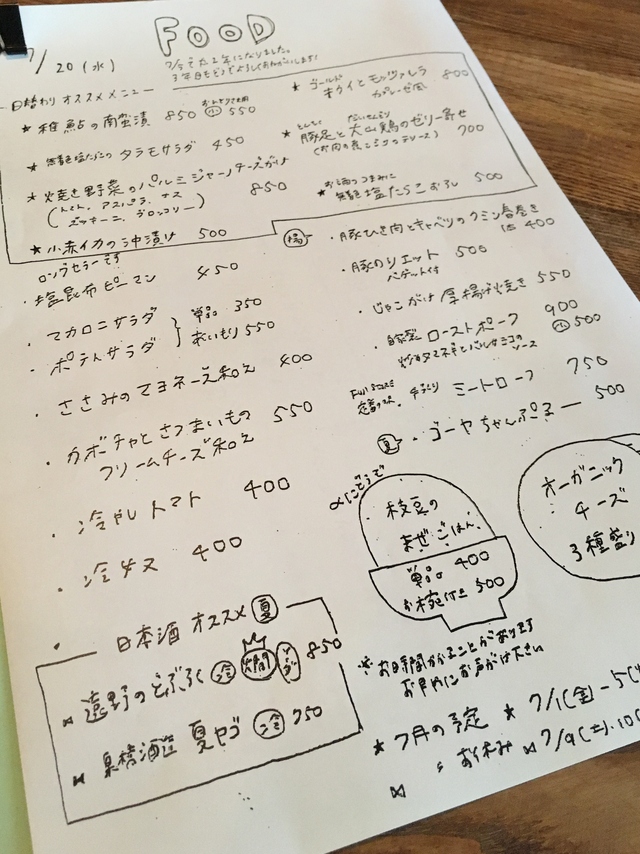 FOOD
7/20(水)
7/5で丸2年になりました。
3年目もどうぞよろしくおねがいします!
日替わりオススメメニュー
★ 稚鮎の南蛮漬 850 おひとりさま用 小 550
★ 無着色塩たらこの タラモサラダ 450
★ 焼き野菜のパルミジャーノチーズがけ 850
(トマト、アスパラ、ナス
ズッキーニ、ブロッコリー)
★ 小赤イカの沖漬け 500
★ ゴールドキウイとモッツァレラ 800
カプレーゼ風
★ 豚足と大山鶏のゼリー寄せ 700
とんそく だいせんどり
★ お酒のつまみに
無着色塩たらこおろし 500
ロングセラーです
・塩昆布ピーマン 450
・マカロニサラダ
・ポテトサラダ
単品 350
あいもり 550
・ささみのマヨネーズ和え 400
・カボチャとさつまいもの 550
クリームチーズ和え
・冷やしトマト 400
・冷ナス 400
揚
・豚ひき肉とキャベツのクミン春巻き
1本 400
・豚のリエット 500
バゲット付
・じゃこがけ厚揚げ焼き 550
・自家製 ローストポーク 900
小 500
炒めタマネギとバルサミコのソース
・手づくり ミートローフ 750
夏 ・ゴーヤちゃんぷるー 500
〆にどうぞ
枝豆の
まぜごはん
単品 400
お椀付き 500
オーガニック
チーズ
3種盛り
※お時間かかることがあります
お早めにお声がけ下さい
日本酒 オススメ 夏
⋈ 遠野のどぶろく 冷 燗 ソーダ 850
⋈ 泉橋酒造 夏ヤゴ 冷 750
★ 7月の予定 ★ 7/1(金)-5(
お休み ⋈ 7/9(土)・10(